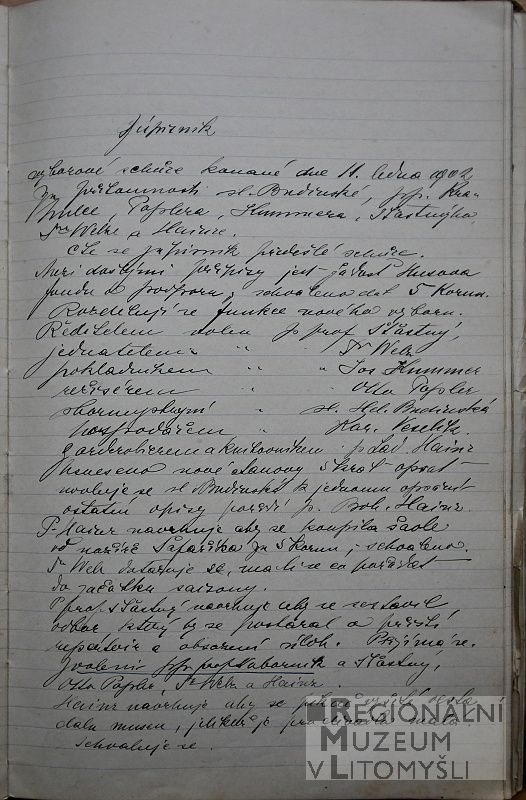 Zápisník
výborové schůze konané dne 11. ledna 1902
za přítomnosti sl. Budinské, pp.
Popplera, Hummera, Šťastného,
Dra Welze a Hainze.
Čte se zápisník předešlé schůze.
Mezi došlými přípisy jest žádost Husova
fondu o podporu, schváleno dát 5 Korun.
Rozdělují se funkce nového výboru.
Ředitelem volen p prof Šťastný,
jednatelem " " Dr Welz
pokladníkem " " Jos Hummer
režisérem " " Otto Poppler
sbormistryní " sl. Hel. Budinská
hospodářem " Kar. Veselík
garderobierem a knihovníkem p Lad. Hainz
Usneseno nové stanovy 5krát opsat
uvoluje se sl. Budinská k jednomu opsání
ostatní opisy pořídí p. Boh. Hainz.
P. Hainz navrhuje aby se koupila
od Šafaříka za 5 korun, schváleno.
Dr Welz dotazuje se, má-li se co pořádat
do začátku saizony.
P prof. Šťastný navrhuje aby se sestavil
odbor který by se postaral o příští
repertoir a obsazení úloh. Přijímá se.
Zvoleni pp. prof Náborník a Šťastný,
Otto Poppler, Dr Welz a Hainz.
Hainz navrhuje aby se
museu, jelikož je
Schvaluje se.
REGIONÁLNÍ
MUZEUM
V LITOMYŠLI